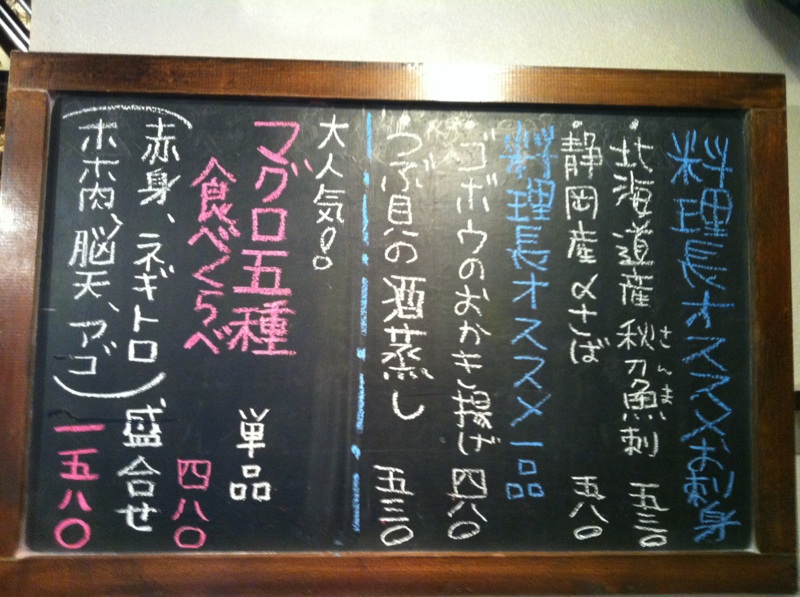 料理長オススメお刺身
・北海道産 秋刀魚刺 五三〇
さんま
・静岡産 〆さば 五八〇
料理長オススメ一品
・ゴボウのおかき揚げ 四八〇
・つぶ貝の酒蒸し 五三〇
大人気!!
マグロ五種
食べくらべ
単品
四八〇
(赤身、ネギトロ
ホホ肉、脳天、アゴ)
盛合せ
一五八〇